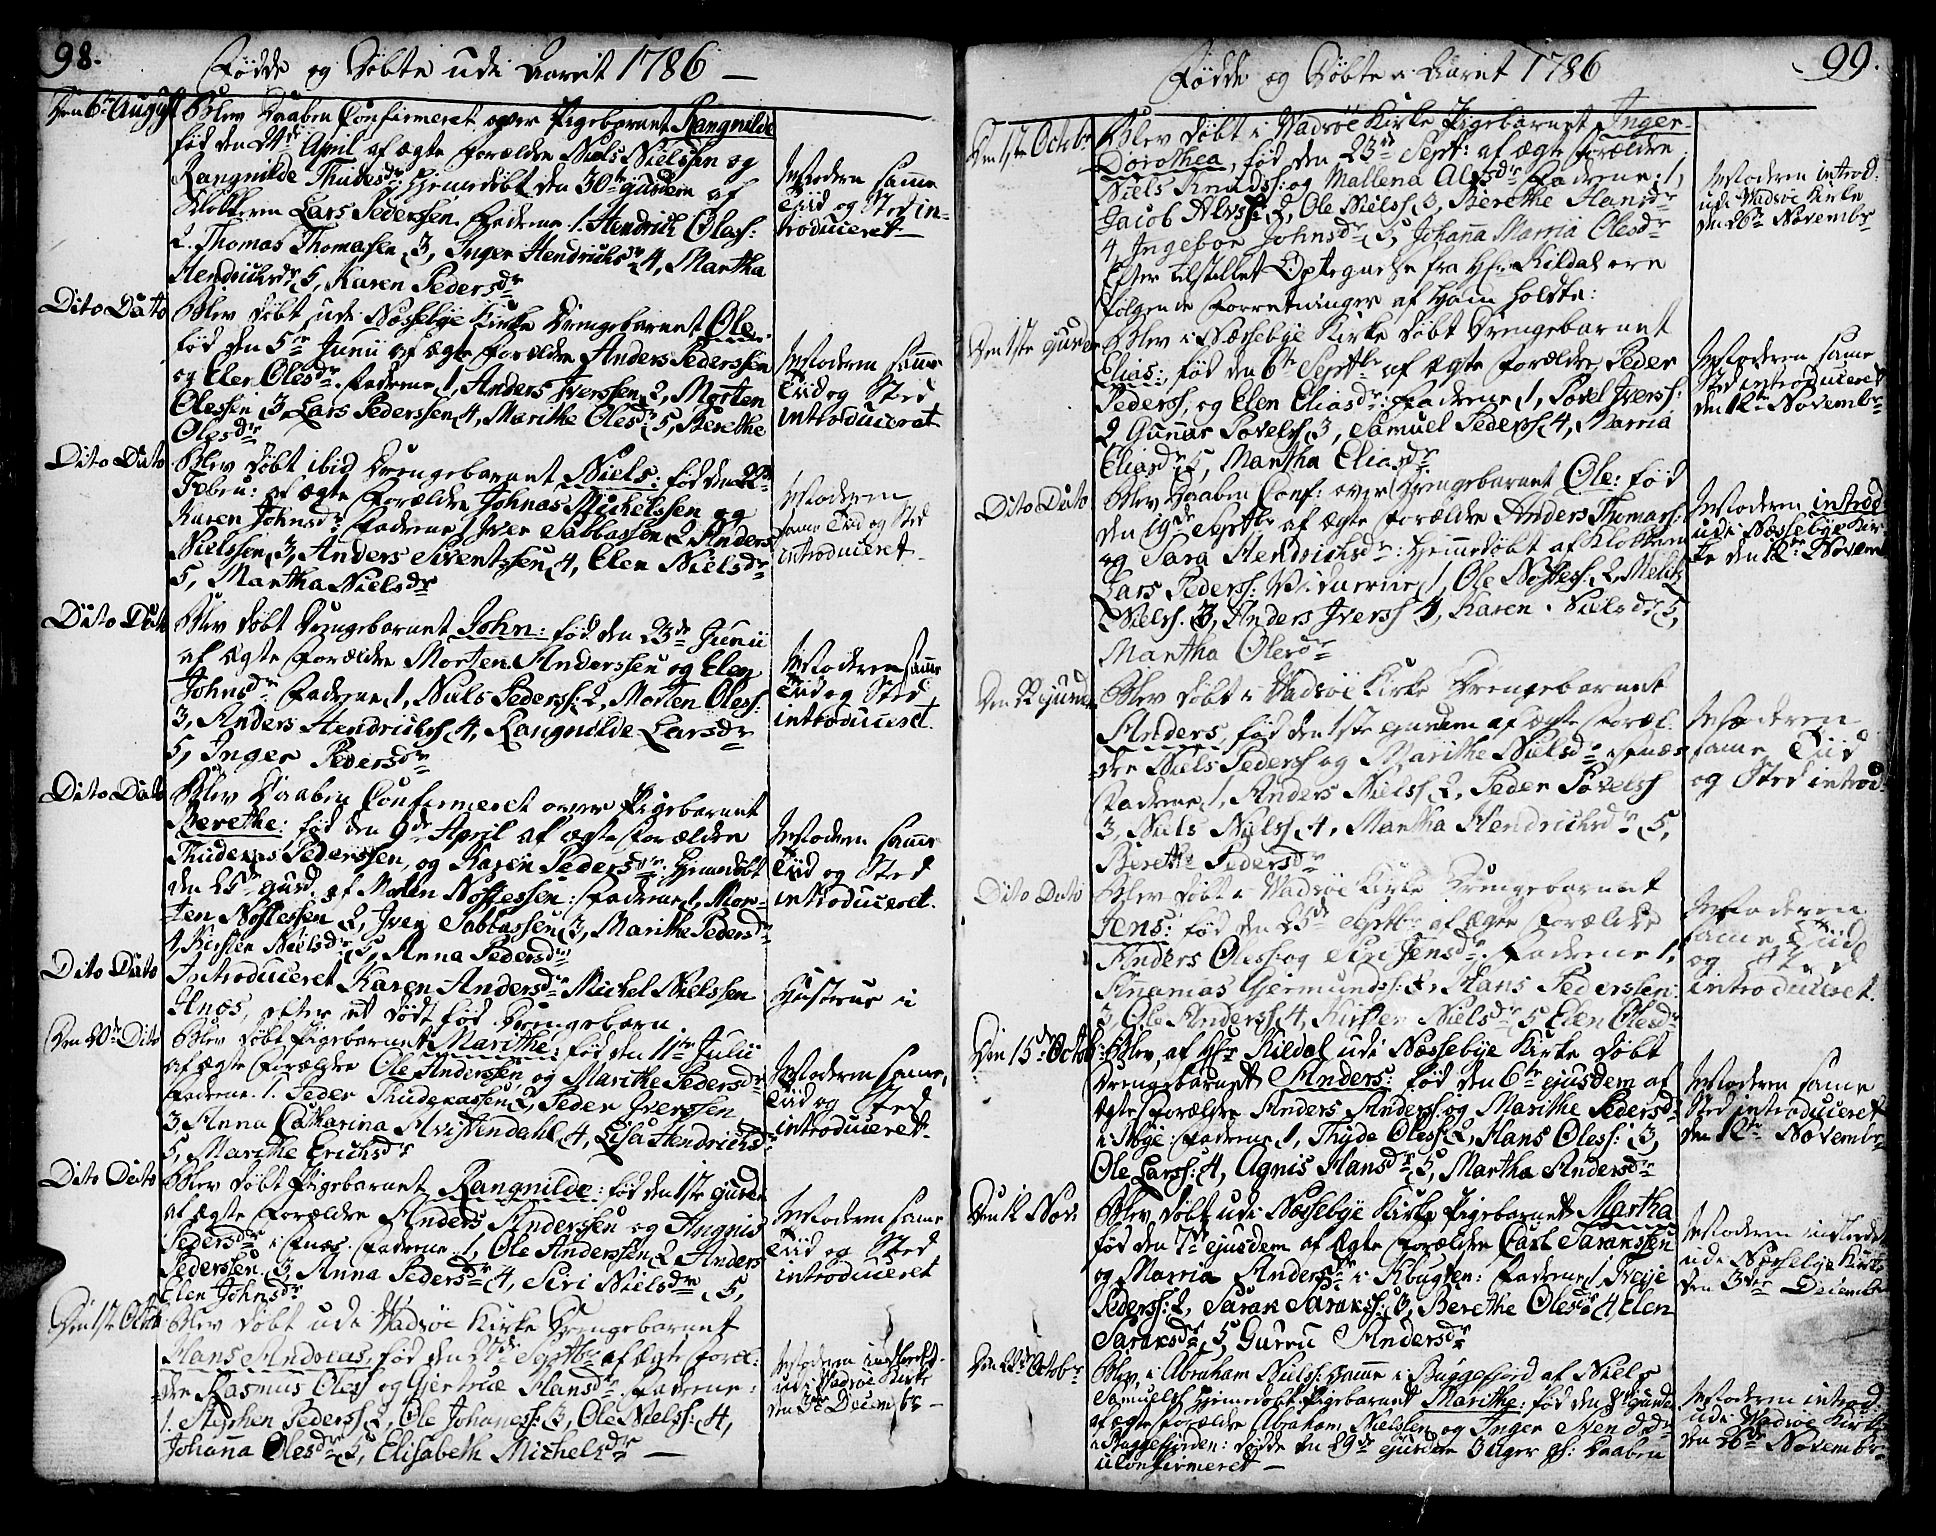 98.
Fødde og Døbte udi Aaret 1786 —
Den 6te Augusti
Blev Daaben Confirmeret over Pigebarnet Rangnilde
fød den 24de April af ægte Forældre Niels Nielssen og
Rangnilde Thudesdr: Hjemmedøbt den 30te ejusdem af
Klokkeren Lars Pederssen. Fadderne 1, Hendrich Olass:
2. Thomas Thomassen 3, Inger Hendrichsdr 4, Martha
Hendrichsdr 5, Karen Pedersdr
Moderen samme
Tiid og Sted in-
troduceret —
Dito Dato
Blev døbt udi Næssebye Kirke Drengebarnet Ole
fød den 5te Junii af ægte Forældre Anders Pederssen
og Elen Olesdr. Fadderne 1, Anders Iverssen 2, Morten
Olessen 3, Lars Pederssen 4, Marithe Olesdr 5, Berethe
Olesdr
Moderen samme
Tiid og Sted
introduceret
Dito Dato
Blev døbt ibid Drengebarnet Niels: fød den 22de
Febru: af ægte Forældre Johnas Michelssen og
Karen Johnsdr Fadderne 1 Iver Sabbassen 2 Anders
Nielssen 3, Anders Siventzsen 4, Elen Nielsdr
5, Martha Nielsdr
Moderen
samme Tiid og Sted
introduceret —
Dito Dato
Blev døbt Drengebarnet John: fød den 23de Junii
af ægte Forældre Morten Anderssen og Elen
Johnsdr Fadderne 1, Niels Pederss: 2, Morten Oless:
3, Anders Hendrichss 4, Rangnilde Larsdr
5, Inger Pedersdr
Moderen samme
Tiid og Sted
introduceret.
Dito Dato
Blev Daaben Confirmeret over Pigebarnet
Berethe: fød den 9de April af ægte Forældre
Pederssen, og Karen Pedersdr. Hjemmedøbt
den 25de ejusd. af Morten Noffessen: Fadderne 1, Mor-
ten Noffessen 2, Iver Sabbassen 3, Marithe Pedersdr
4, Kirsten Nielsdr 5, Anna Pedersdr
Moderen samme
Tiid og Sted
introduceret.
Dito Dato
Introduceret Karen Andersdr Michel Nielssen
Hnøs, efter et dødt fød Drengebarn
Hustrue i
Den 20de Dito
Blev døbt Pigebarnet Marithe: fød den 11te Julii
af ægte Forældre Ole Anderssen og Marithe Pedersdr
Fadderne 1. Peder 2, Peder Iverssen
3, Anna Catharina 4, Lisa Hendrichsdr
5, Marithe Erichsdr
Moderen samme,
Tiid og Sted
introduceret.
Dito Dato
Blev døbt Pigebarnet Rangnilde: fød den 1ste ejusdem
af ægte Forældre Anders Anderssen og Angnis
Pedersdr i Næs. Fadderne 1, Ole Anderssen 2 Anders
Pederssen 3, Anna Pedersdr 4, Siri Nielsdr 5,
Elen Johnsdr
Moderen samme
Tiid og Sted
introduceret
Den 1ste Octob
Blev døbt udi Wadsøe Kirke Drengebarnet
Hans Andreas, fød den 27de Septbr af ægte Foræl:
dre Rasmus Oless og Gjertrue Hansdr. Fadderne:
1. Stephen Pederss 2, Ole Johanss: 3, Ole Nielss: 4,
Johanna Olesdr 5, Elisabeth Michelsdr —
Moderen
udi Wadsøe Kirke
den 3de Decembr —
99.
Fødde og Døbte i Aaret 1786
Den 1ste Octobr
Blev døbt i Wadsøe Kirke Pigebarnet Inger
Dorothea, fød den 23de Sept: af ægte Forældre
Niels Knudss: og Mallena Alfsdr. Fadderne: 1,
Jacob Alvss: 2, Ole Nielss 3, Berethe Hansdr
4, Ingebor Johnsdr 5, Johanna Marria Olesdr
Moderen introd:
udi Wadsøe Kirke
den 26de Novembr
Efter tilstillet Optegnelse fra Hr. Kildal ere
følgende Forretninger af Ham holdte:
Den 1ste ejusdem
Blev i Næssebye Kirke døbt Drengebarnet
Elias: fød den 6te Septbr af ægte Forældre Peder
Pederss, og Elen Eliasdr. Fadderne 1, Povel Iverss:
2 Gunnar Povelss 3, Samuel Pederss 4, Marria
Eliasdr 5, Martha Eliasdr
Moderen same
Sted introduceret
den 12te Novembr
Dito Dato
Blev Daaben Conf: over Drengebarnet Ole: fød
den 19de Septbr af ægte Forældre Anders Thomass:
og Sara Hendrichsdr: Hjemmedøbt af Klokkeren
Lars Pederss: Vidnerne 1, Ole Noffess: 2,
Nielss. 3, Anders Iverss 4, Karen Nielsdr 5,
Martha Olesdr
Moderen introd
udi Næssebye Kir-
ke den 12te Novem
Den 22 ejusdem
Blev døbt i Wadsøe Kirke Drengebarnet
Anders, fød den 1ste ejusdem af ægte Foræl-
dre Niels Pederss og Marithe Nielsdr
Fadderne 1, Anders Nielss 2, Peder Povelss
3, Niels Nylss 4, Martha Hendrichsdr 5,
Berethe Pedersdr
Moderen
samme Tiid
og Sted introd:
Dito Dato
Blev døbt i Wadsøe Kirke Drengebarnet
Jens: fød den 25de Septbr af ægte Forældre
Anders Oless: og Siri Jensdr. Fadderne 1,
Gjermundss: 2, Hans Pederssen
3, Ole Anderss 4, Kirsten Nielsdr 5 Elen Olesdr
Moderen
same Tiid
og Sted
introduceret.
Den 15de Octob:
Blev, af Hr Kildal udi Næssebye Kirke døbt
Drengebarnet Anders: fød den 6te ejusdem af
ægte Forældre Anders Anderss: og Marithe Pedersdr
Fadderne 1, Thyde Oless 2, Hans Oless: 3,
Ole Larss: 4, Agnis Hansdr 5, Martha Andersdr
Moderen same
Sted introduceret
den 12te Novembr
Den 12 Nov:
Blev døbt udi Næssebye Kirke Pigebarnet Martha
fød den 7de ejusdem af ægte Forældre Carl Sarakssen
og Marria Andersdr i Kbugten: Fadderne 1, Reije
Pederss: 2, Sarak Sarakss: 3, Berethe Olesdr 4, Elen
Saraksdr 5, Gurru Andersdr
Moderen
udi Næssebye Kirke
den 3die Decembr
Den 22de Octobr
Blev i Abraham Nielss: Gamme i Buggefjord af Niels
Samuelss Hjemmedøbt Pigebarnet Marithe: fød den ejusdem
af ægte Forældre Abraham Nielssen og Inger Svendsdr
i Buggefjorden: døde den 29de ejusdem 3 Uger gl: Daaben
uconfirmeret —
Moderen introd:
udi Wadsøe Kirke
den 26de Novembr